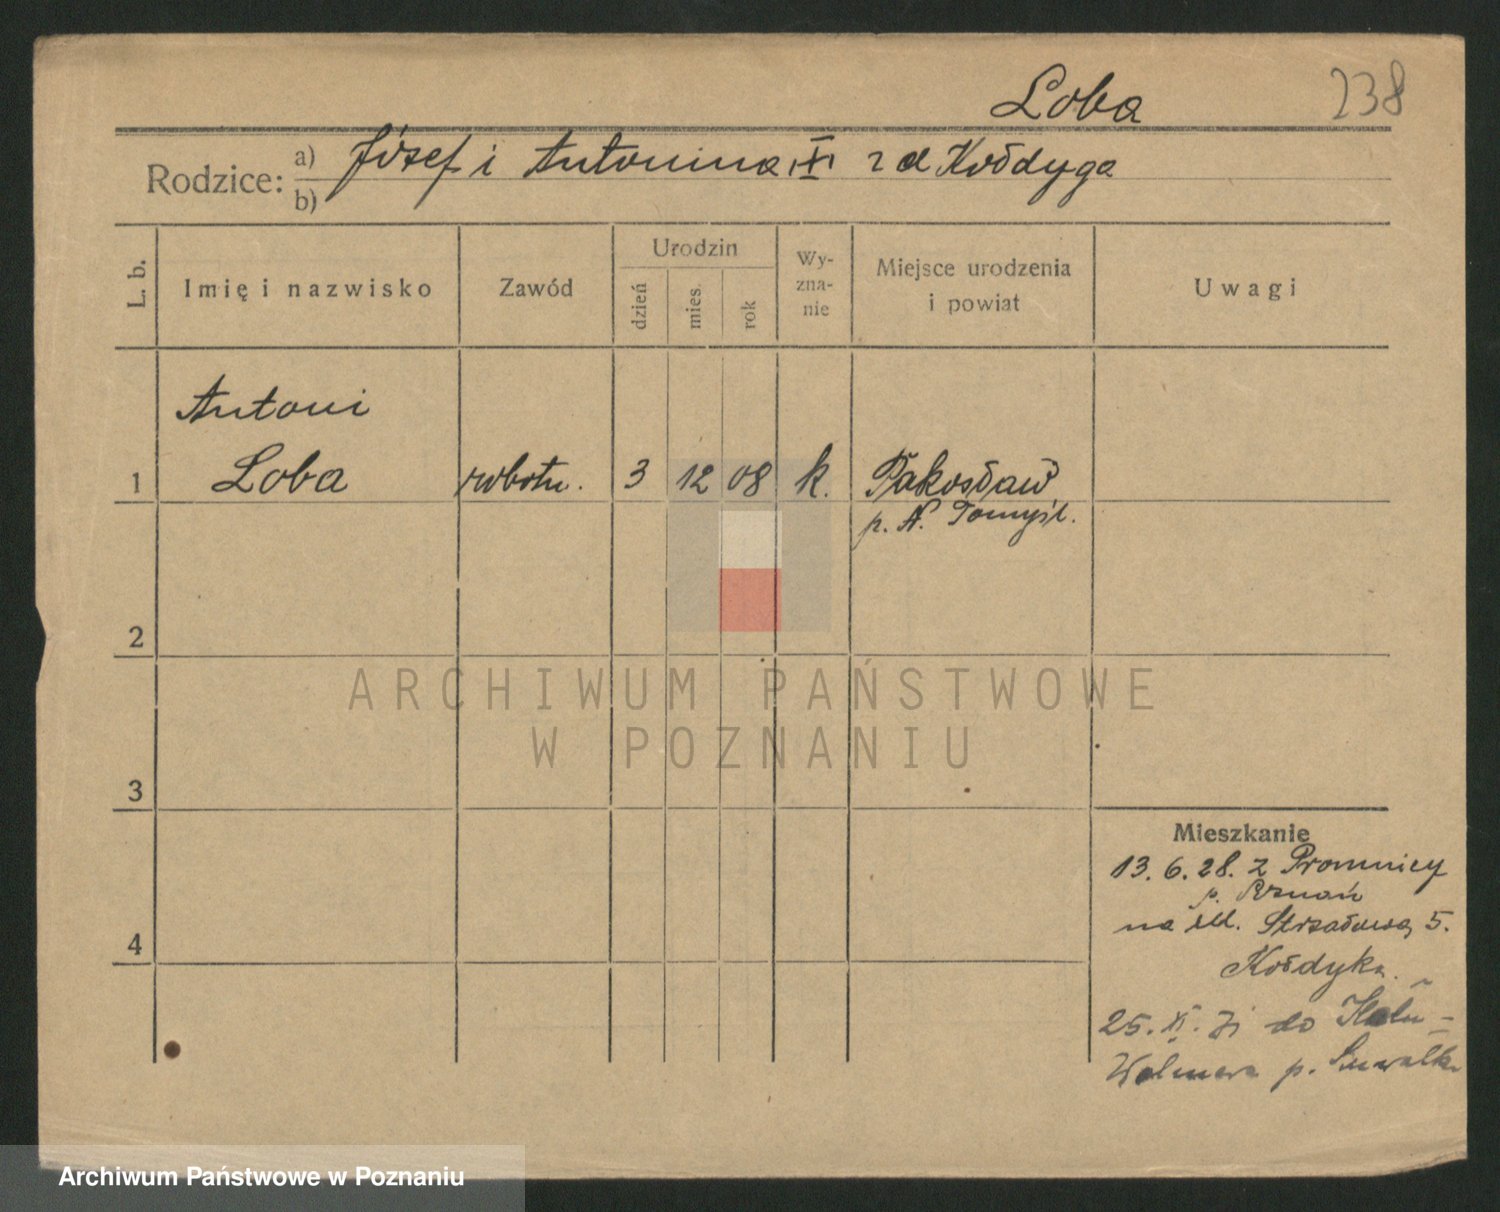 Loba 238
Rodzice: a) Józef i Antonina z d Kołdyga
b)
L. b. Imię i nazwisko Zawód Urodzin dzień mies. rok Wy-zna-nie Miejsce urodzenia i powiat Uwagi
Antoni
1 Loba robotn. 3 12 08 k. Pakosław
p. N. Tomyśl.
2
ARCHIWUM PAŃSTWOWE
W POZNANIU
3
Mieszkanie
13. 6. 28. z Promnicy
p. Poznań
na ul. Strzałową 5.
4
Kołdyka.
25. XI. do
p. Suwałki
Archiwum Państwowe w Poznaniu